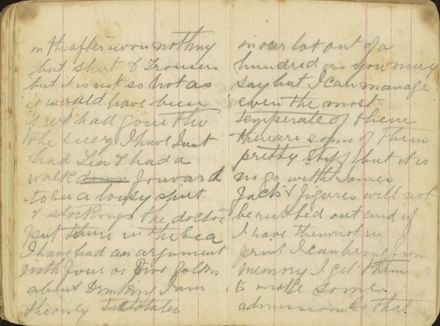 in the afternoon nothing
but shirt & Trousers
but it is not so hot as
it would have been
if we had gone thro
the suez I have Just
had Tea & had a
walk down forward
to see a lousy shirt
& stockings the doctor
put them in the Sea
I have had an argument
with four or five fellows
about Drinking I am
the only Teetotaler
in our lot out of a
hundred as you may
say but I can manage
even the most
temperate of them
there are some of them
pretty stiff but it is
no go with James
Jack's figures will not
be rubbed out and if
I have them not in
print I can
memory I get them
to smile some
admissions So that